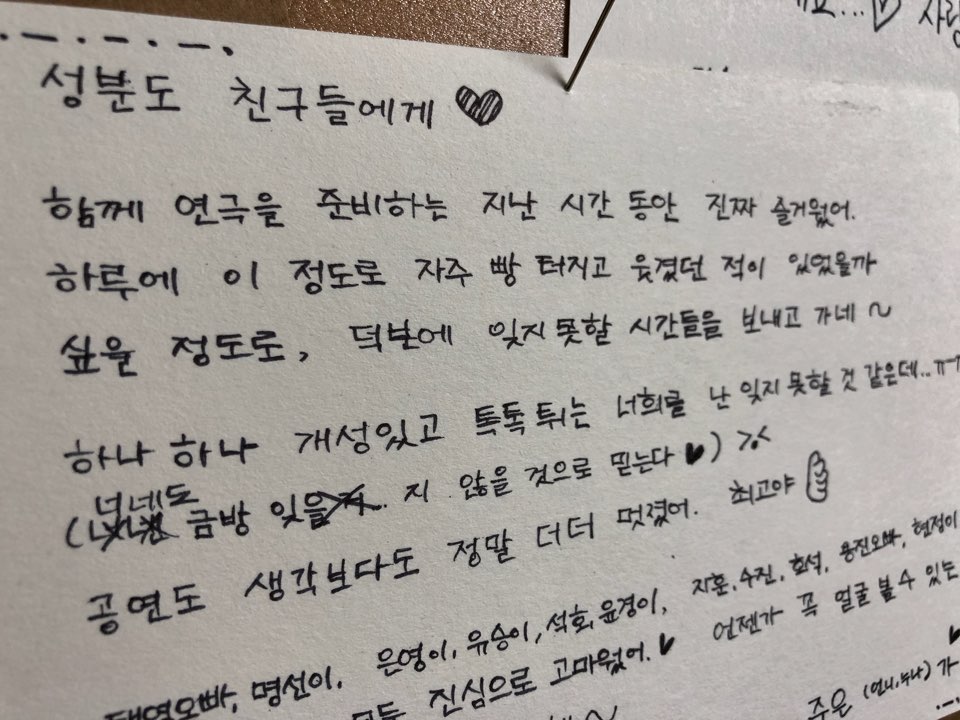 사랑
성분도 친구들에게 ♥
함께 연극을 준비하는 지난 시간 동안 진짜 즐거웠어.
하루에 이 정도로 자주 빵 터지고 웃겼던 적이 있었을까
싶을 정도로, 덕분에 잊지 못할 시간들을 보내고 가네 ~
하나 하나 개성있고 톡톡 튀는 너희를 난 잊지 못할 것 같은데..ㅠㅠ
(너네도 금방 잊을 지 않을 것으로 믿는다 ♥) >.<
공연도 생각보다도 정말 더더 멋졌어. 최고야
은영이, 유승이, 석희, 윤경이, 지훈, 수진, 호석, 용진오빠, 현정이
오빠, 명선이,
모두 진심으로 고마웠어. ♥ 언젠가 꼭 얼굴 볼 수 있는
주은 (언니, 누나) 가